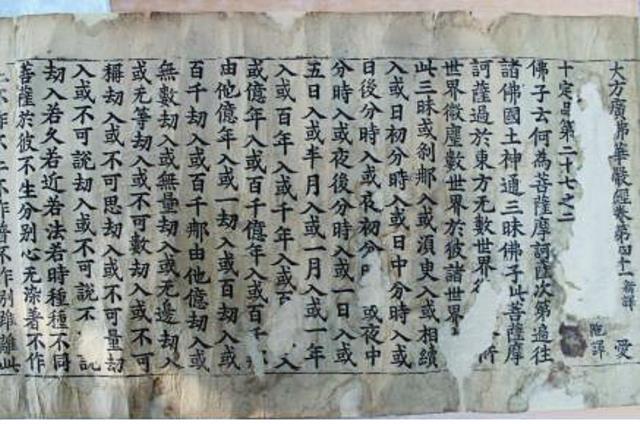 大方廣弗華嚴經卷第四十一 新譯 愛
十定品第二十七之二
佛子云何為菩薩摩訶薩次第遍往
諸佛國土神通三昧佛子此菩薩摩
訶薩過於東方无數世界
世界微塵數世界於彼諸世界
此三昧或剎那入或須臾入或相續
入或日初分時入或日中分時入或
日後分時入或夜初分 或夜中
分時入或夜後分時入或一日入或
五日入或半月入或一月入或一年
入或百年入或千年入或 入
或億年入或百千億年入或百千
由他億年入或一劫入或百劫入或
百千劫入或百千那由他億劫入或
無數劫入或無量劫入或无邊劫入
或无等劫入或不可數劫入或不可
稱劫入或不可思劫入或不可量劫
入或不可說劫入或不可說不 說
劫入若久若近若法若時種種不同
菩薩於彼不生分別心无染著不作
二不作不二不作普不作別雖離此